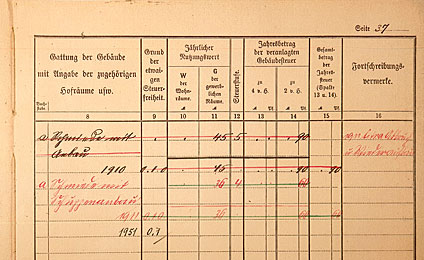 Seite 37
Gattung der Gebäude
mit Angabe der zugehörigen
Hofräume usw.
Grund
der
etwai-
gen
Steuer-
freiheit.
Jährlicher
Nutzungswert
W
der
Wohn-
räume.
G
der
gewerb-
lichen
Räume.
Steuerstufe.
Jahresbetrag
der veranlagten
Gebäudesteuer
zu
4 v. H.
zu
2 v. H.
Gesamt-
betrag
der
Jahres-
steuer
(Spalte
13 u. 14).
Fortschreibungs-
vermerke.
8 9 10 11 12 13 14 15 16
a Schmiede mit 45 5 90
Anbau
1910 0.1.0 45 90 90
a Schmiede mit 36 4 60
Schuppenanbau
1911 0.1.0 36 60 60
1931 0.1